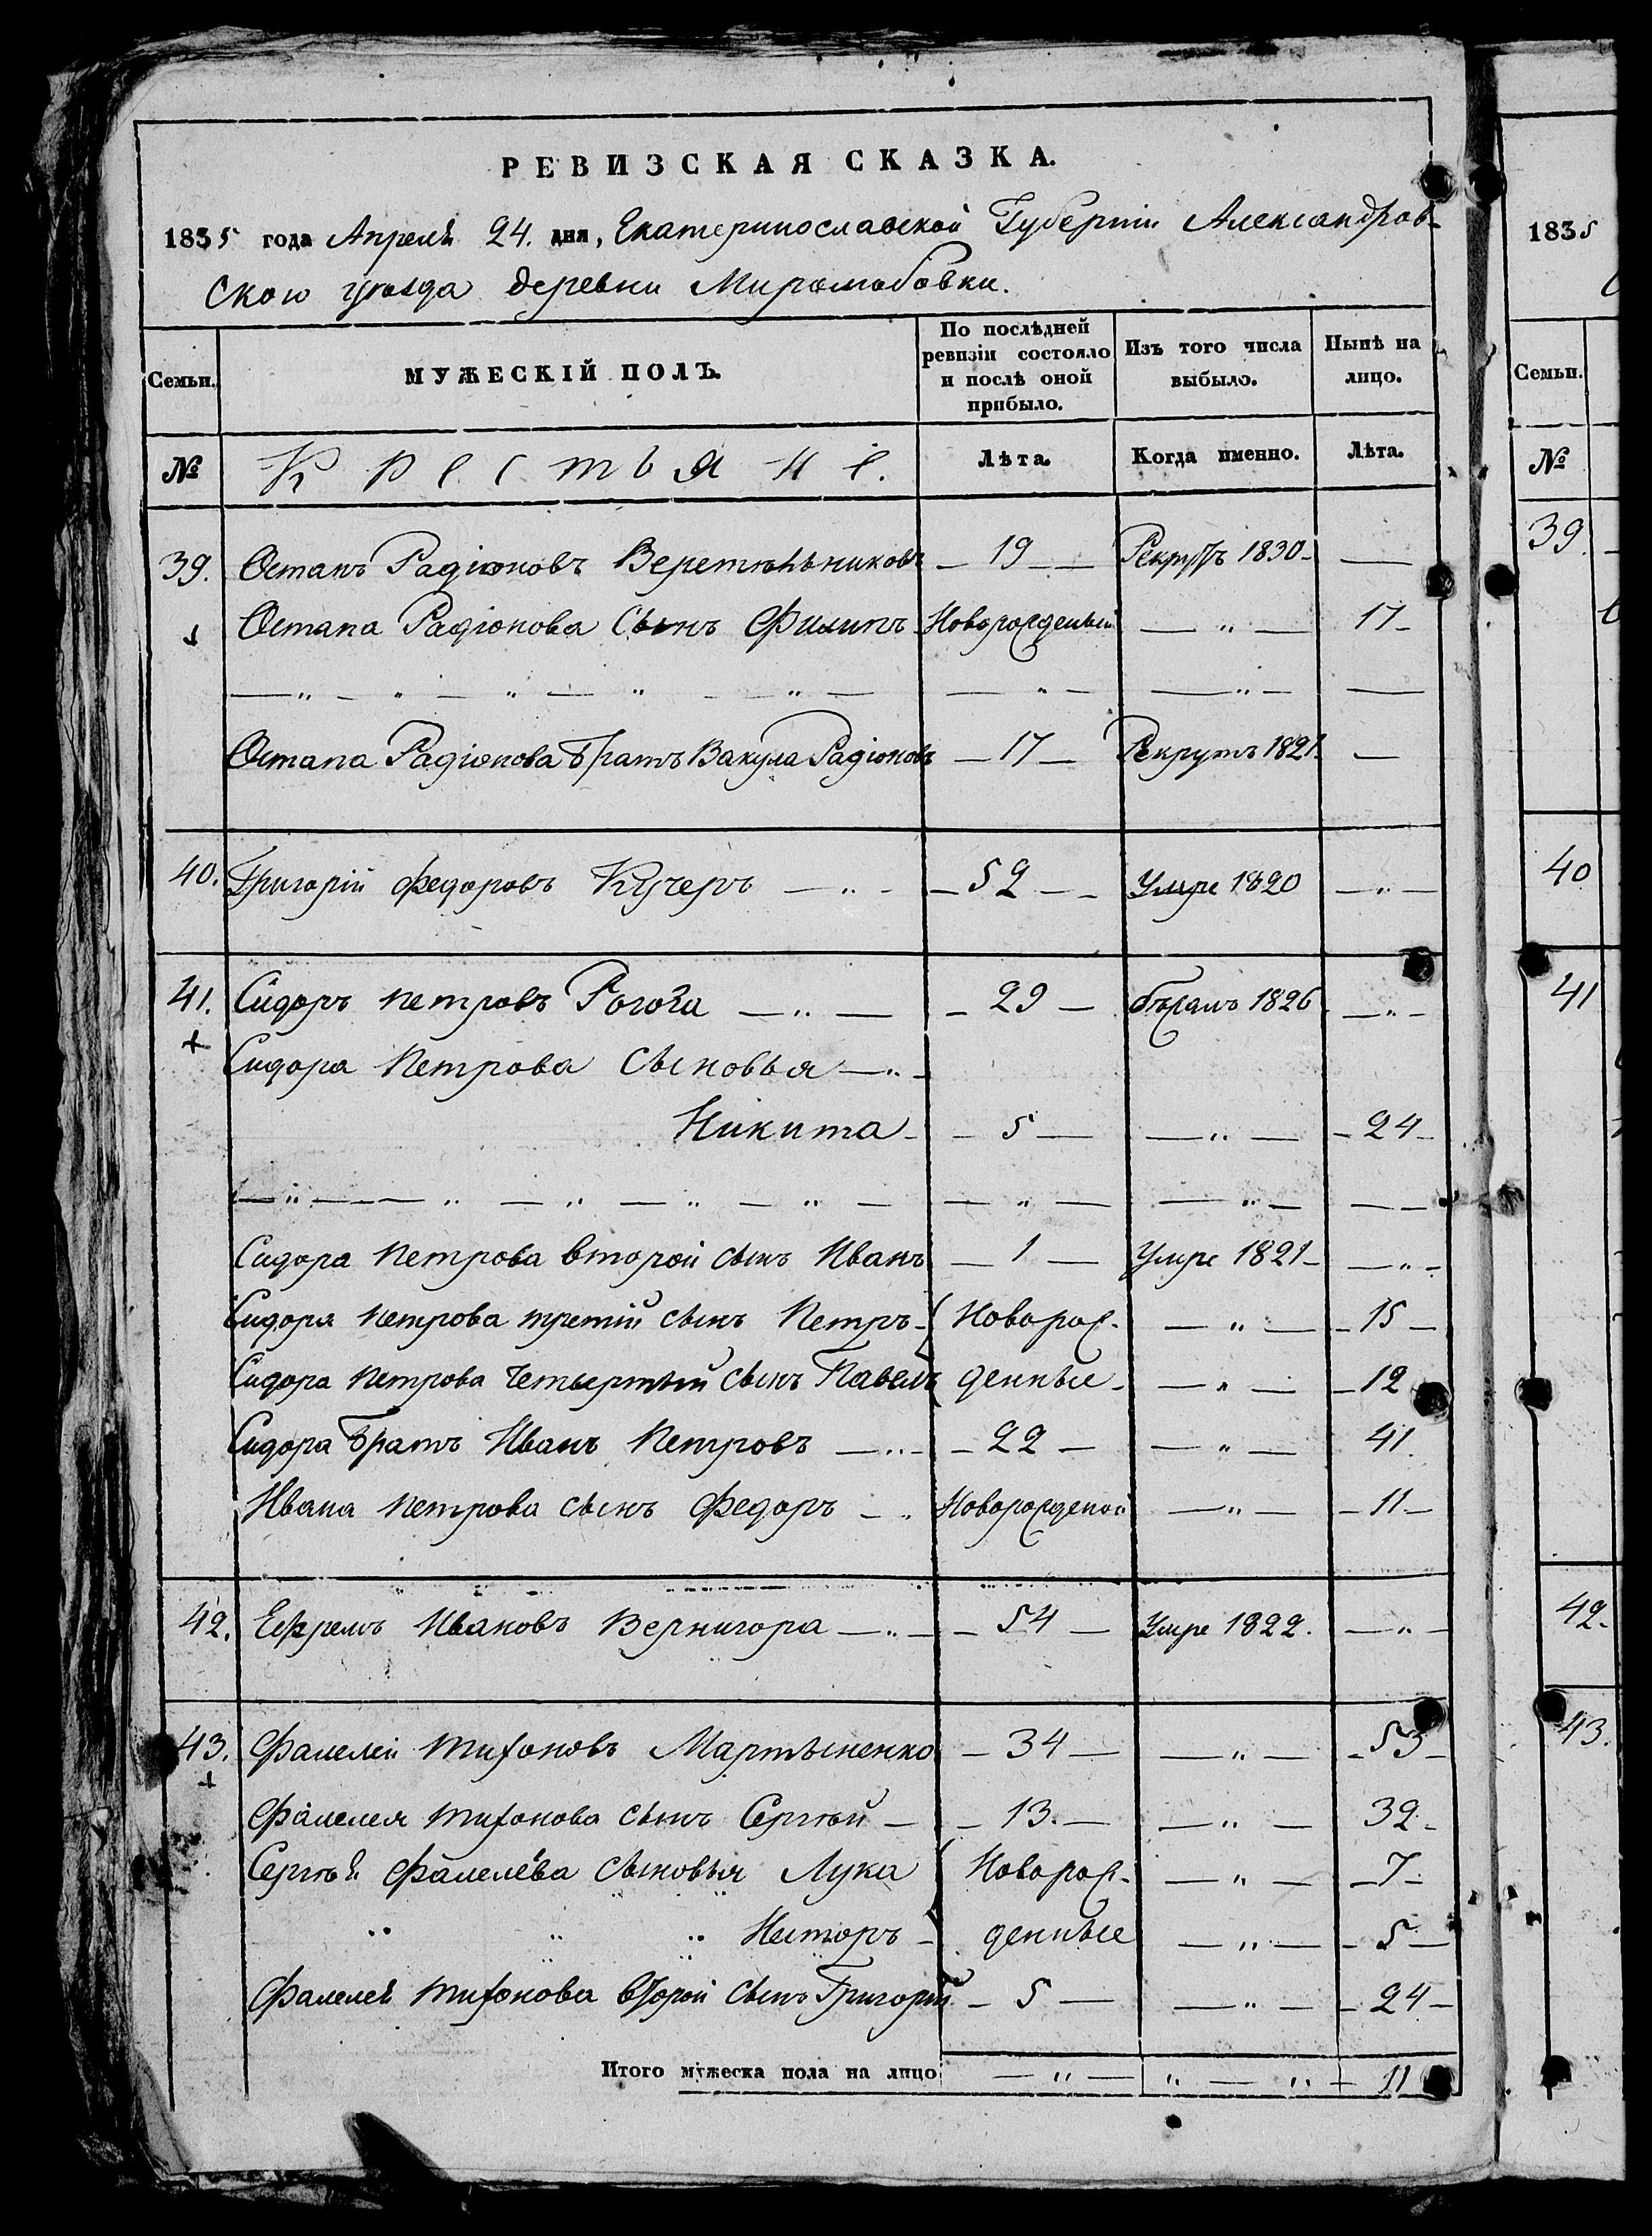 РЕВИЗСКАЯ СКАЗКА.
1835 года Апреля 24. дня, Екатеринославской Губерніи Александров-
ского уезда деревни Миролюбовки.
Семьи.
МУЖЕСКІЙ ПОЛЪ.
По послѣдней ревизіи состояло и послѣ оной прибыло.
Изъ того числа выбыло.
Нынѣ на лицо.
№ Крестьяне. Лѣта. Когда именно. Лѣта.
39. Остапъ Радіоновъ — 19 — Рекрутъ 1830 — —
Остапа Радіонова Сынъ Филипъ Новорожденный — „ — 17 —
— „ — „ — „ — „ — „ — — „ — — „ — —
Остапа Радіонова братъ Вакула Радіоновъ — 17 — Рекрутъ 1821. —
40. Григорій Федоровъ Кучеръ — „ — — 52 — Умре 1820 — „ —
41. Сидоръ Петровъ Рогоза — „ — — 29 — бѣгалъ 1826 — „ —
+ Сидора Петрова Сыновья — „ —
Никита — — 5 — — „ — — 24 —
— „ — — „ — „ — „ — „ — — „ — — „ — — —
Сидора Петрова второй сынъ Иванъ — 1 — Умре 1821 — — „ —
Сидора Петрова третій сынъ Петръ — Новорож- — „ — — 15 —
Сидора Петрова Четвертый сынъ Павелъ денные — — „ — — 12
Сидора братъ Иванъ Петровъ — „ — — 22 — — „ — 41.
Ивана Петрова сынъ Федоръ — „ Новорожденой — „ — — 11 —
42. Ефремъ Ивановъ Вернигора — „ — — 54 — Умре 1822. — „ —
43. Фалелей Тихоновъ Мартыненко — 34 — — „ — — 53 —
+ Фалелея Тихонова сынъ Сергѣй — — 13. — — „ — 32 —
Сергѣя Фалелѣва сыновья Лука Новорож- — „ — — 7 —
„ „ „ Несторъ — денные — „ — — 5 —
Фалелея Тихонова второй сынъ Григорій — 5 — — „ — — 24 —
Итого мужеска пола на лицо — „ — „ — „ — 11
1835
Семьи.
№
39.
40
41
42.
43.